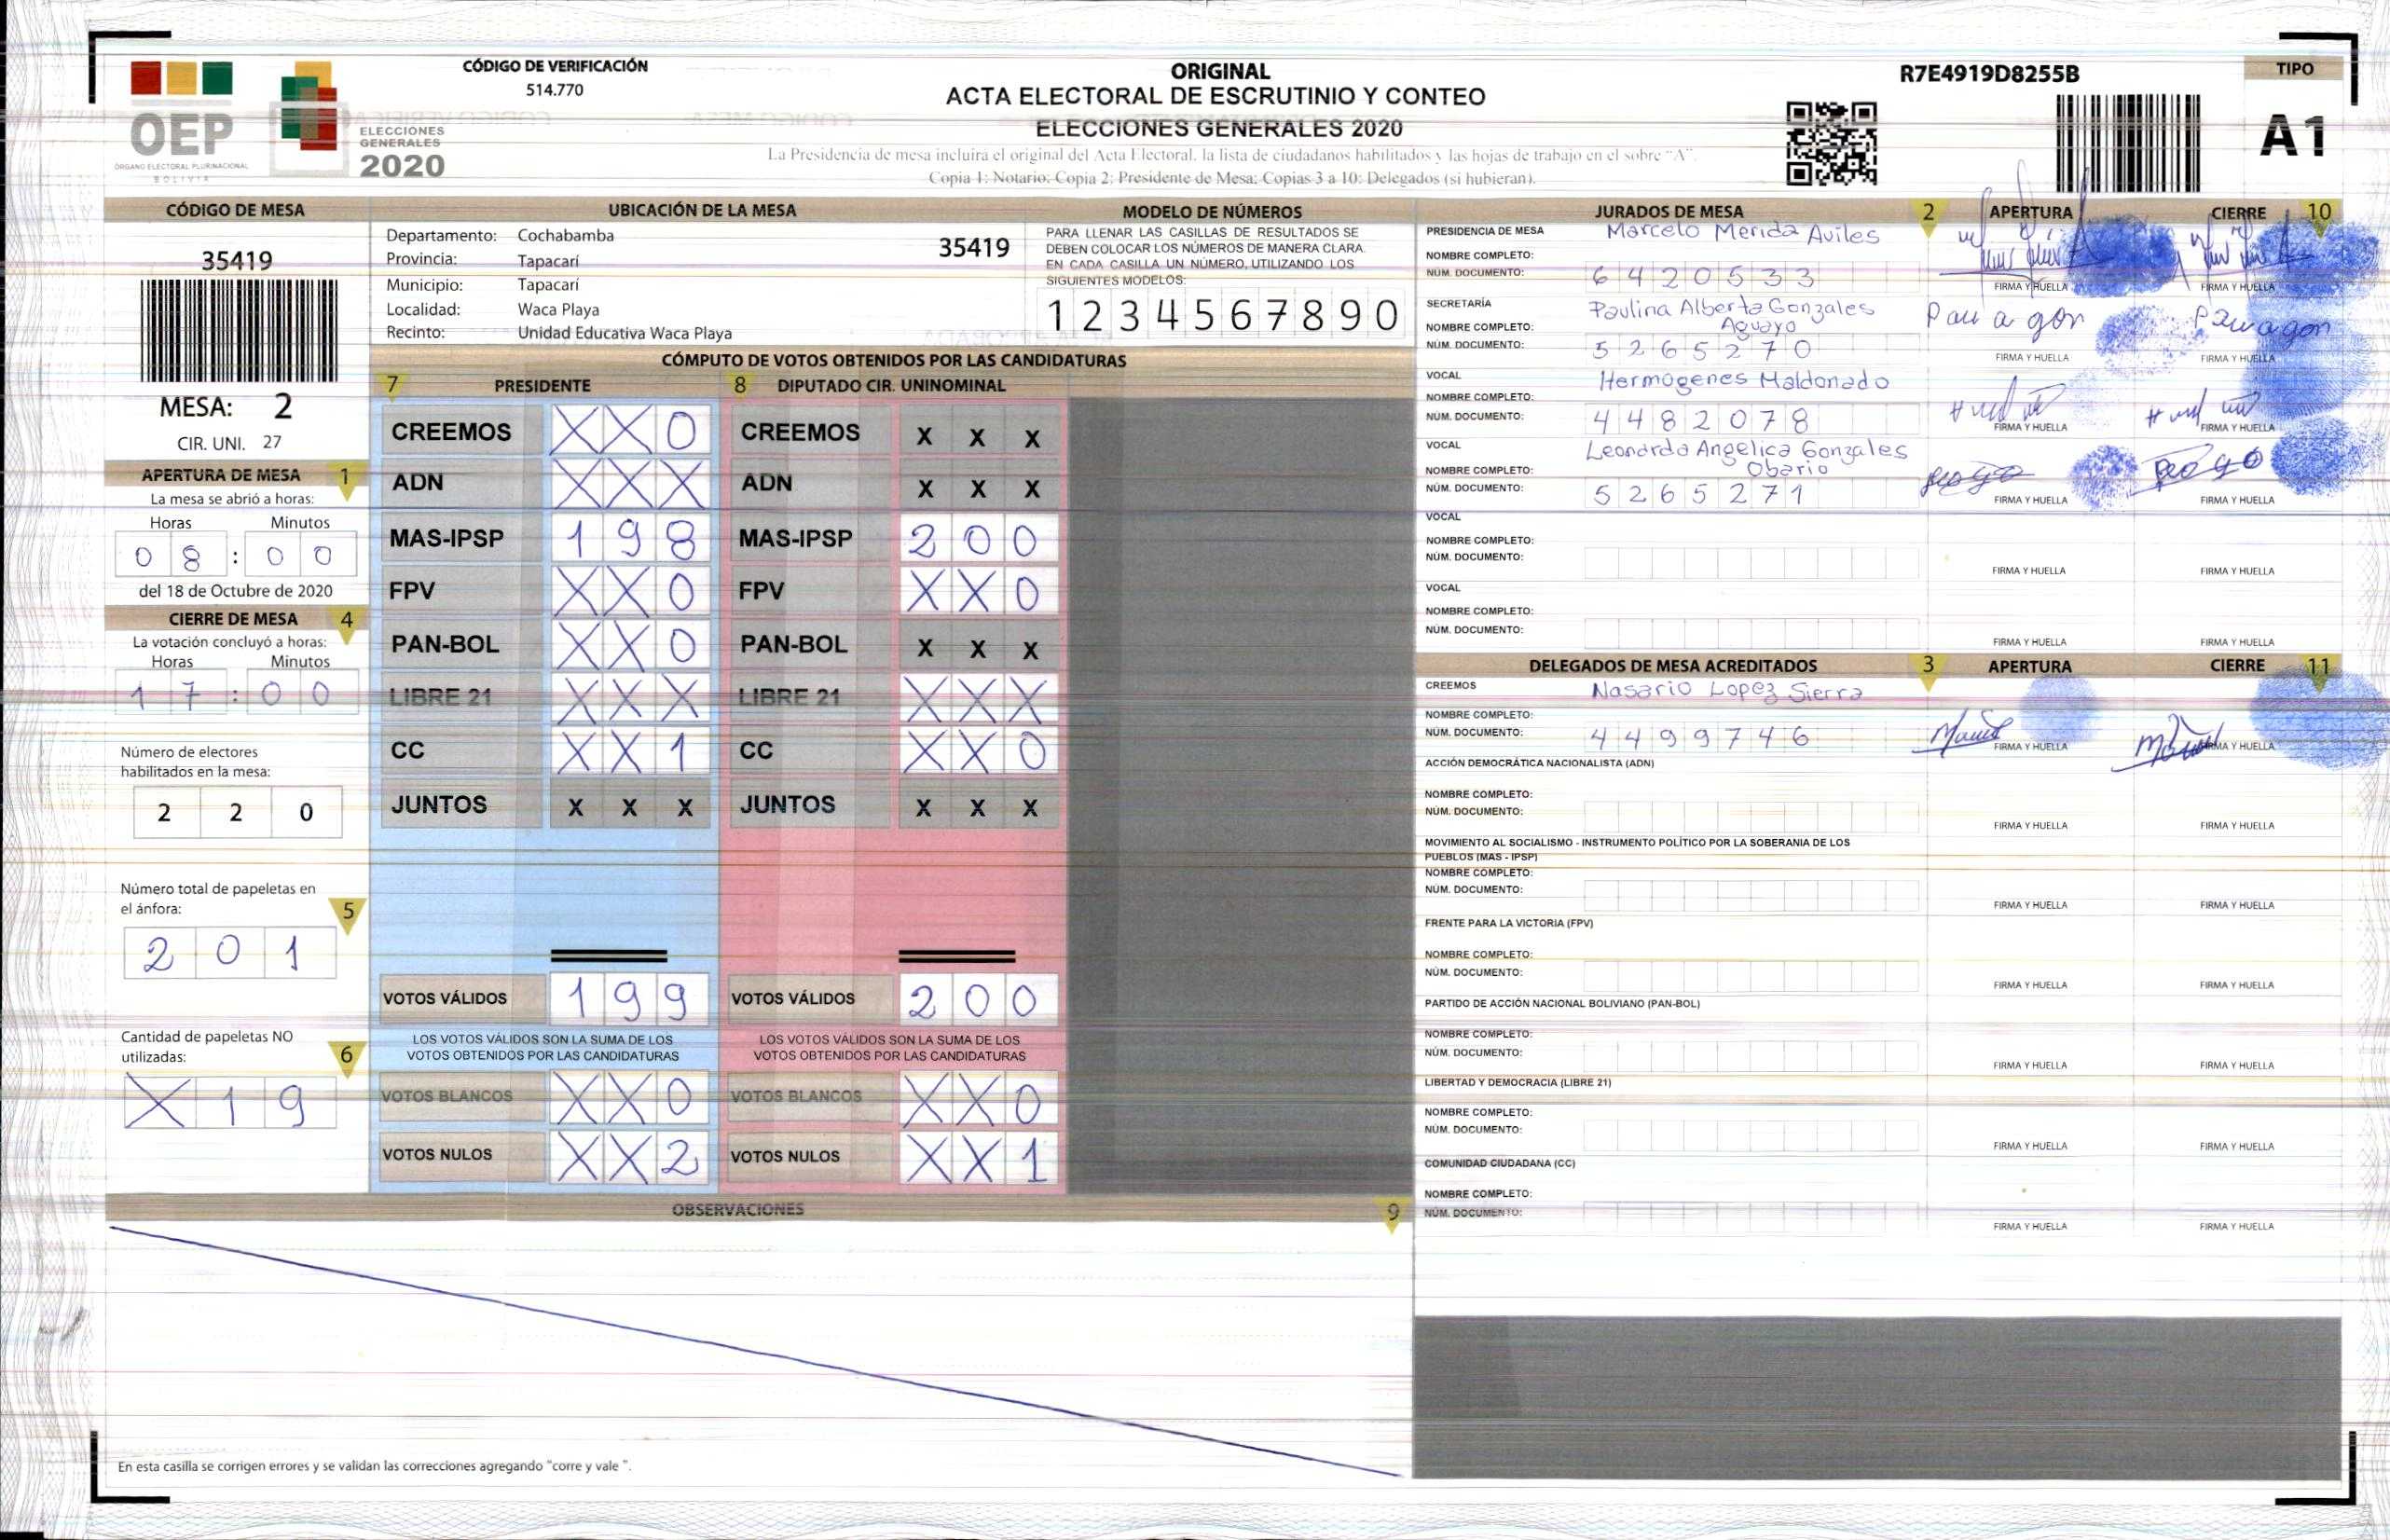 OEP
ÓRGANO ELECTORAL PLURINACIONAL
BOLIVIA
ELECCIONES
GENERALES
2020
CÓDIGO DE VERIFICACIÓN
514.770
ORIGINAL
ACTA ELECTORAL DE ESCRUTINIO Y CONTEO
ELECCIONES GENERALES 2020
La Presidencia de mesa incluirá el original del Acta Electoral, la lista de ciudadanos habilitados y las hojas de trabajo en el sobre "A".
Copia 1: Notario; Copia 2: Presidente de Mesa; Copias 3 a 10: Delegados (si hubieran).
R7E4919D8255B
TIPO
A1
CÓDIGO DE MESA
35419
MESA: 2
CIR. UNI. 27
UBICACIÓN DE LA MESA
Departamento: Cochabamba
35419
Provincia: Tapacarí
Municipio: Tapacarí
Localidad: Waca Playa
Recinto: Unidad Educativa Waca Playa
MODELO DE NÚMEROS
PARA LLENAR LAS CASILLAS DE RESULTADOS SE
DEBEN COLOCAR LOS NÚMEROS DE MANERA CLARA.
EN CADA CASILLA UN NÚMERO, UTILIZANDO LOS
SIGUIENTES MODELOS:
1 2 3 4 5 6 7 8 9 0
APERTURA DE MESA 1
La mesa se abrió a horas:
Horas Minutos
0 8 : 0 0
del 18 de Octubre de 2020
CIERRE DE MESA 4
La votación concluyó a horas:
Horas Minutos
1 7 : 0 0
Número de electores
habilitados en la mesa:
2 2 0
Número total de papeletas en
el ánfora: 5
2 0 1
Cantidad de papeletas NO
utilizadas: 6
X 1 9
CÓMPUTO DE VOTOS OBTENIDOS POR LAS CANDIDATURAS
7 PRESIDENTE 8 DIPUTADO CIR. UNINOMINAL
CREEMOS X X 0 CREEMOS X X X
ADN X X X ADN X X X
MAS-IPSP 1 9 8 MAS-IPSP 2 0 0
FPV X X 0 FPV X X 0
PAN-BOL X X 0 PAN-BOL X X X
LIBRE 21 X X X LIBRE 21 X X X
CC X X 1 CC X X 0
JUNTOS X X X JUNTOS X X X
VOTOS VÁLIDOS 1 9 9 VOTOS VÁLIDOS 2 0 0
LOS VOTOS VÁLIDOS SON LA SUMA DE LOS LOS VOTOS VÁLIDOS SON LA SUMA DE LOS
VOTOS OBTENIDOS POR LAS CANDIDATURAS VOTOS OBTENIDOS POR LAS CANDIDATURAS
VOTOS BLANCOS X X 0 VOTOS BLANCOS X X 0
VOTOS NULOS X X 2 VOTOS NULOS X X 1
OBSERVACIONES 9
En esta casilla se corrigen errores y se validan las correcciones agregando "corre y vale ".
JURADOS DE MESA 2 APERTURA CIERRE 10
PRESIDENCIA DE MESA Marcelo Merida Aviles
NOMBRE COMPLETO:
NÚM. DOCUMENTO: 6 4 2 0 5 3 3
FIRMA Y HUELLA FIRMA Y HUELLA
SECRETARÍA Paulina Alberta Gonzales
NOMBRE COMPLETO: Aguayo
NÚM. DOCUMENTO: 5 2 6 5 2 7 0
FIRMA Y HUELLA FIRMA Y HUELLA
VOCAL Hermogenes Maldonado
NOMBRE COMPLETO:
NÚM. DOCUMENTO: 4 4 8 2 0 7 8
FIRMA Y HUELLA FIRMA Y HUELLA
VOCAL Leonarda Angelica Gonzales
NOMBRE COMPLETO: Obario
NÚM. DOCUMENTO: 5 2 6 5 2 7 1
FIRMA Y HUELLA FIRMA Y HUELLA
VOCAL
NOMBRE COMPLETO:
NÚM. DOCUMENTO:
FIRMA Y HUELLA FIRMA Y HUELLA
VOCAL
NOMBRE COMPLETO:
NÚM. DOCUMENTO:
FIRMA Y HUELLA FIRMA Y HUELLA
DELEGADOS DE MESA ACREDITADOS 3 APERTURA CIERRE 11
CREEMOS Nasario Lopez Sierra
NOMBRE COMPLETO:
NÚM. DOCUMENTO: 4 4 9 9 7 4 6
FIRMA Y HUELLA FIRMA Y HUELLA
ACCIÓN DEMOCRÁTICA NACIONALISTA (ADN)
NOMBRE COMPLETO:
NÚM. DOCUMENTO:
FIRMA Y HUELLA FIRMA Y HUELLA
MOVIMIENTO AL SOCIALISMO - INSTRUMENTO POLÍTICO POR LA SOBERANIA DE LOS
PUEBLOS (MAS - IPSP)
NOMBRE COMPLETO:
NÚM. DOCUMENTO:
FIRMA Y HUELLA FIRMA Y HUELLA
FRENTE PARA LA VICTORIA (FPV)
NOMBRE COMPLETO:
NÚM. DOCUMENTO:
FIRMA Y HUELLA FIRMA Y HUELLA
PARTIDO DE ACCIÓN NACIONAL BOLIVIANO (PAN-BOL)
NOMBRE COMPLETO:
NÚM. DOCUMENTO:
FIRMA Y HUELLA FIRMA Y HUELLA
LIBERTAD Y DEMOCRACIA (LIBRE 21)
NOMBRE COMPLETO:
NÚM. DOCUMENTO:
FIRMA Y HUELLA FIRMA Y HUELLA
COMUNIDAD CIUDADANA (CC)
NOMBRE COMPLETO:
NÚM. DOCUMENTO:
FIRMA Y HUELLA FIRMA Y HUELLA